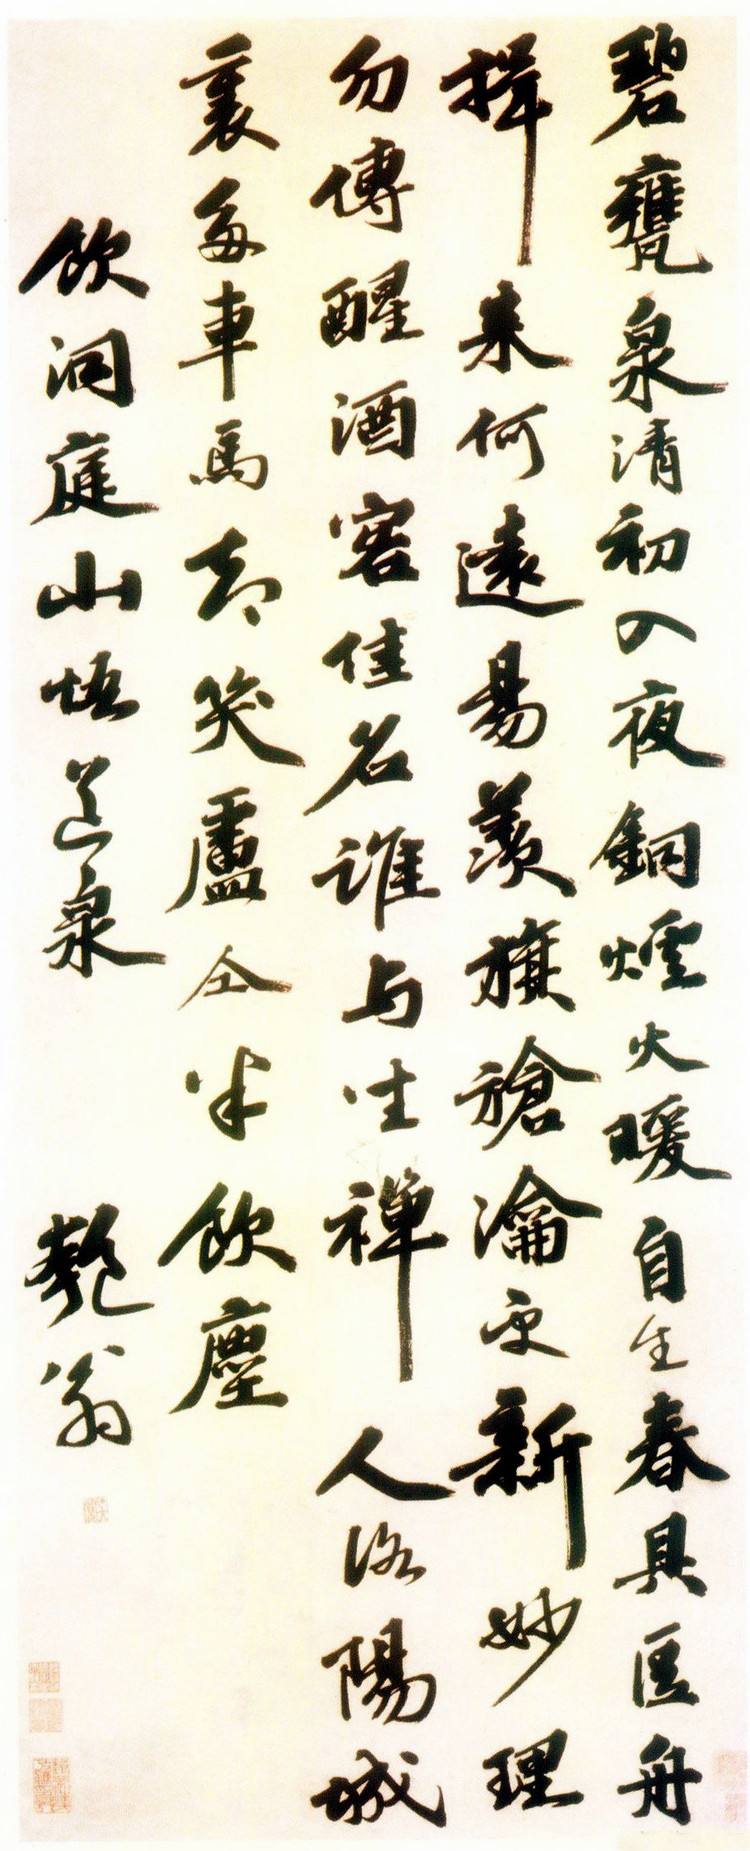 碧甕泉清初入夜銅爐火暖自生春具區舟
楫来何遠昜羨旗槍瀹更新妙理
勿傳醒酒客佳名誰与坐禪人洛陽城
裏多車馬却笑盧仝半飲塵
飲洞庭山悟道泉
匏翁